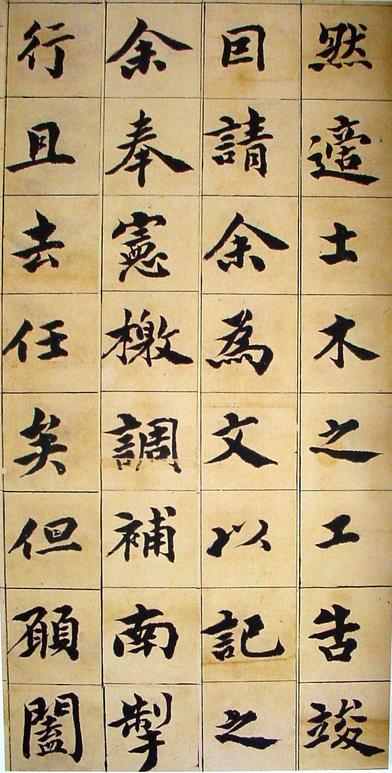 然適土木之工告竣
囙請余為文以記之
余奉憲檄調補南掣
行且去任矣但願闔